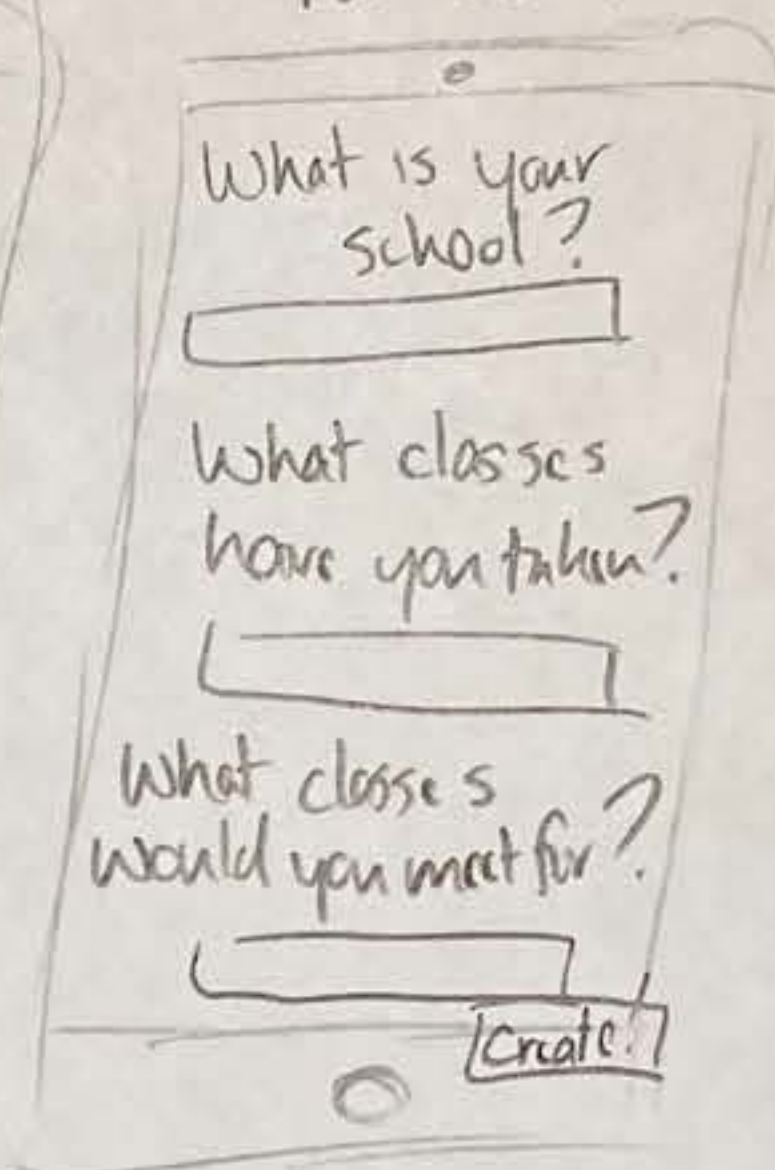 What is your
school?
What classes
have you taken?
What classes
would you meet for?
Create!